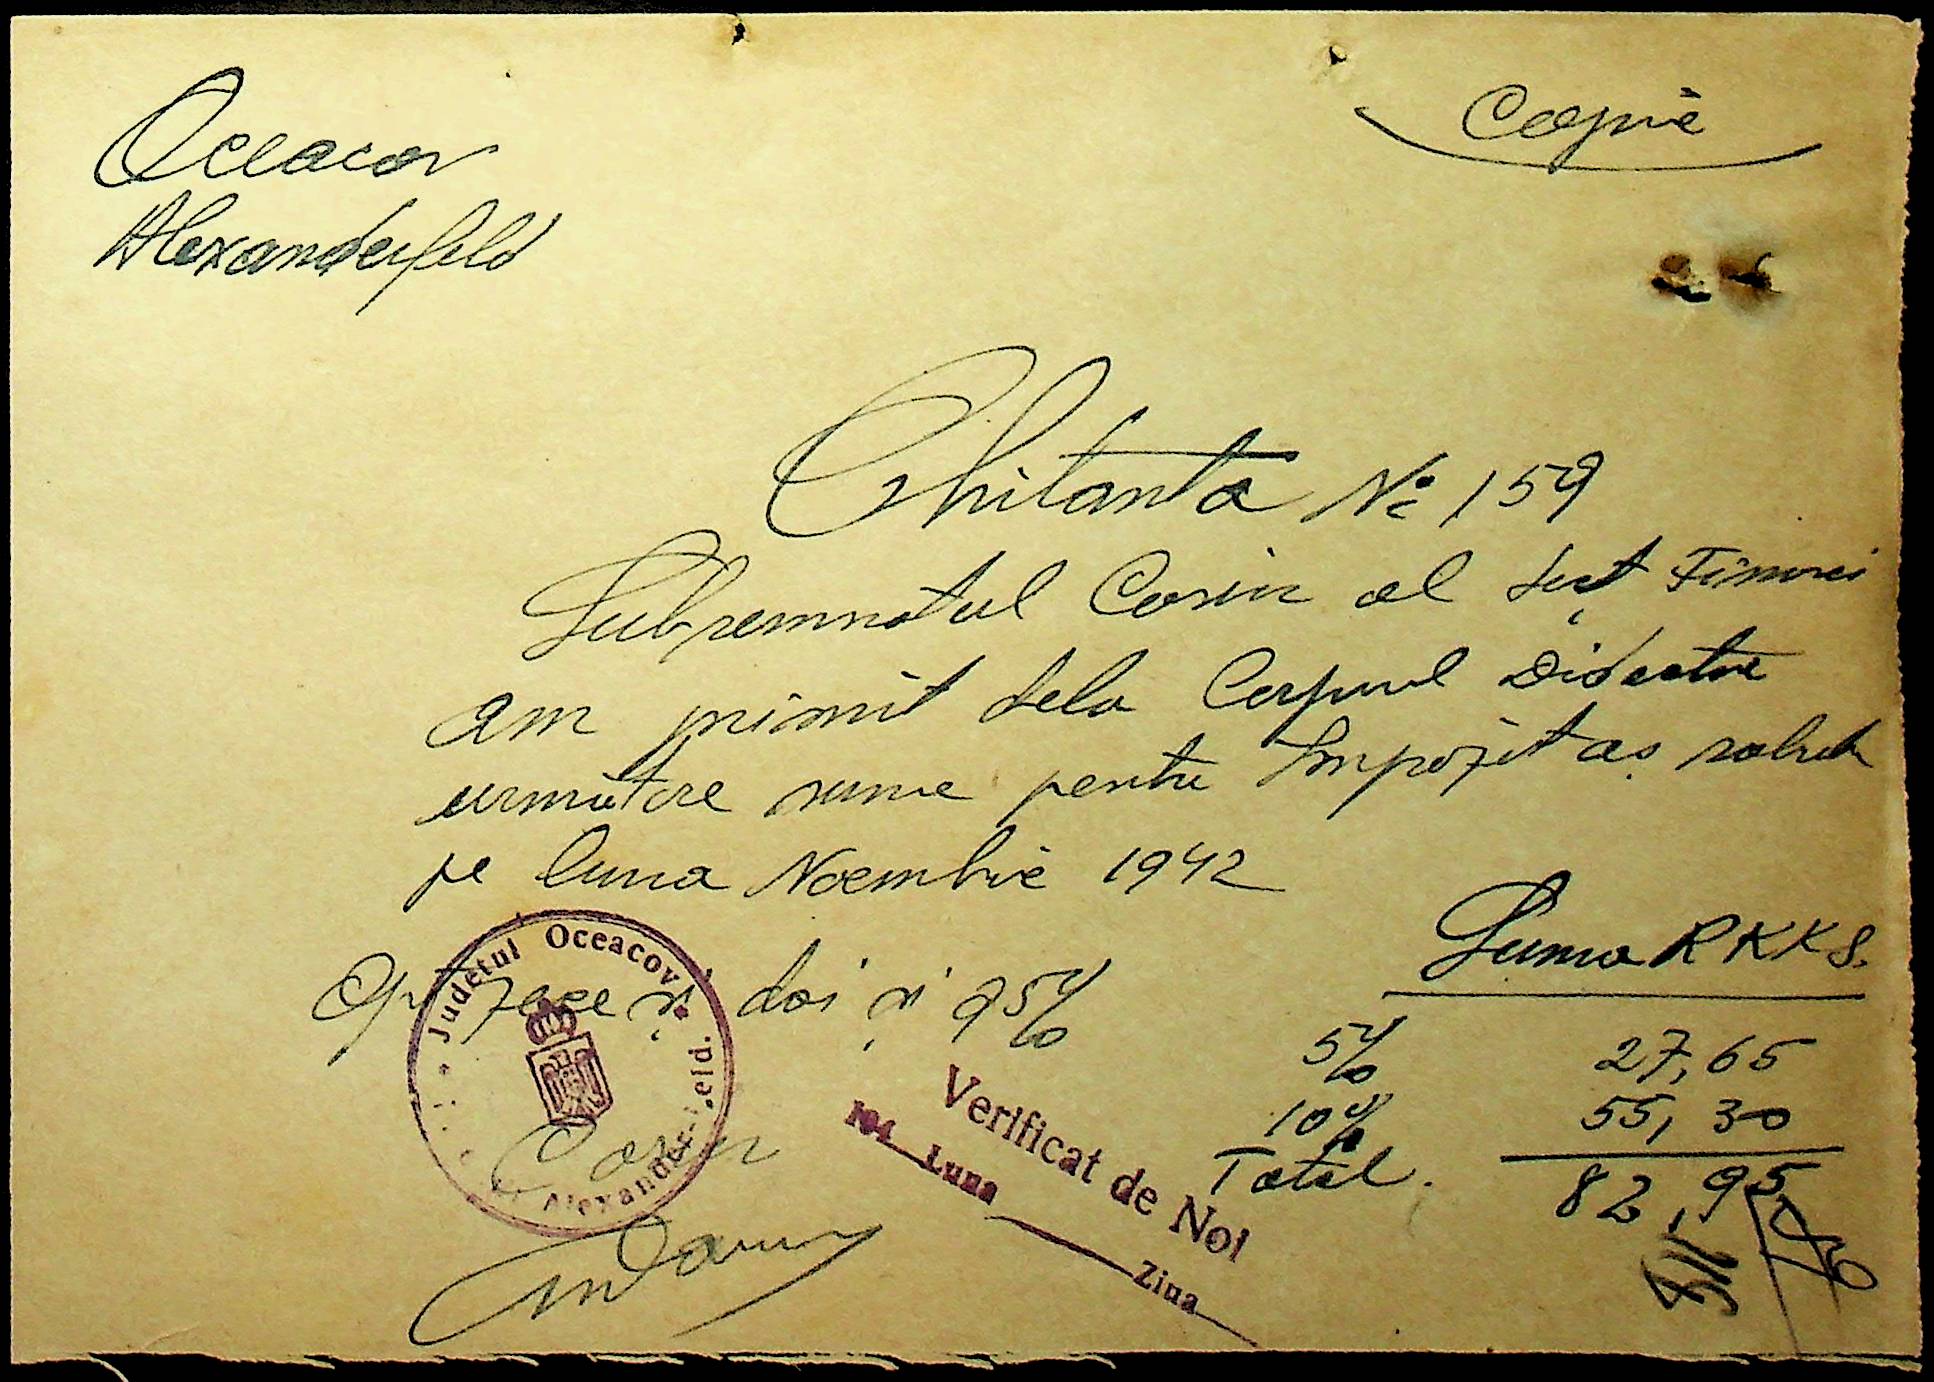 Copie
Oceacov
Alexanderfeld
Chitanta No 159
Subsemnatul Casier al Sect Financi
am primit dela Corpul Didactic
urmatore sume pentru Impozit as. salut
pe luna Noembrie 1942
Suma RKKS.
Optzece și doi și 95%
5% 27,65
10% 55,30
Total. 82,95
Judetul Oceacov
Alexander eld.
Casier
Verificat de Noi
194 Luna Ziua